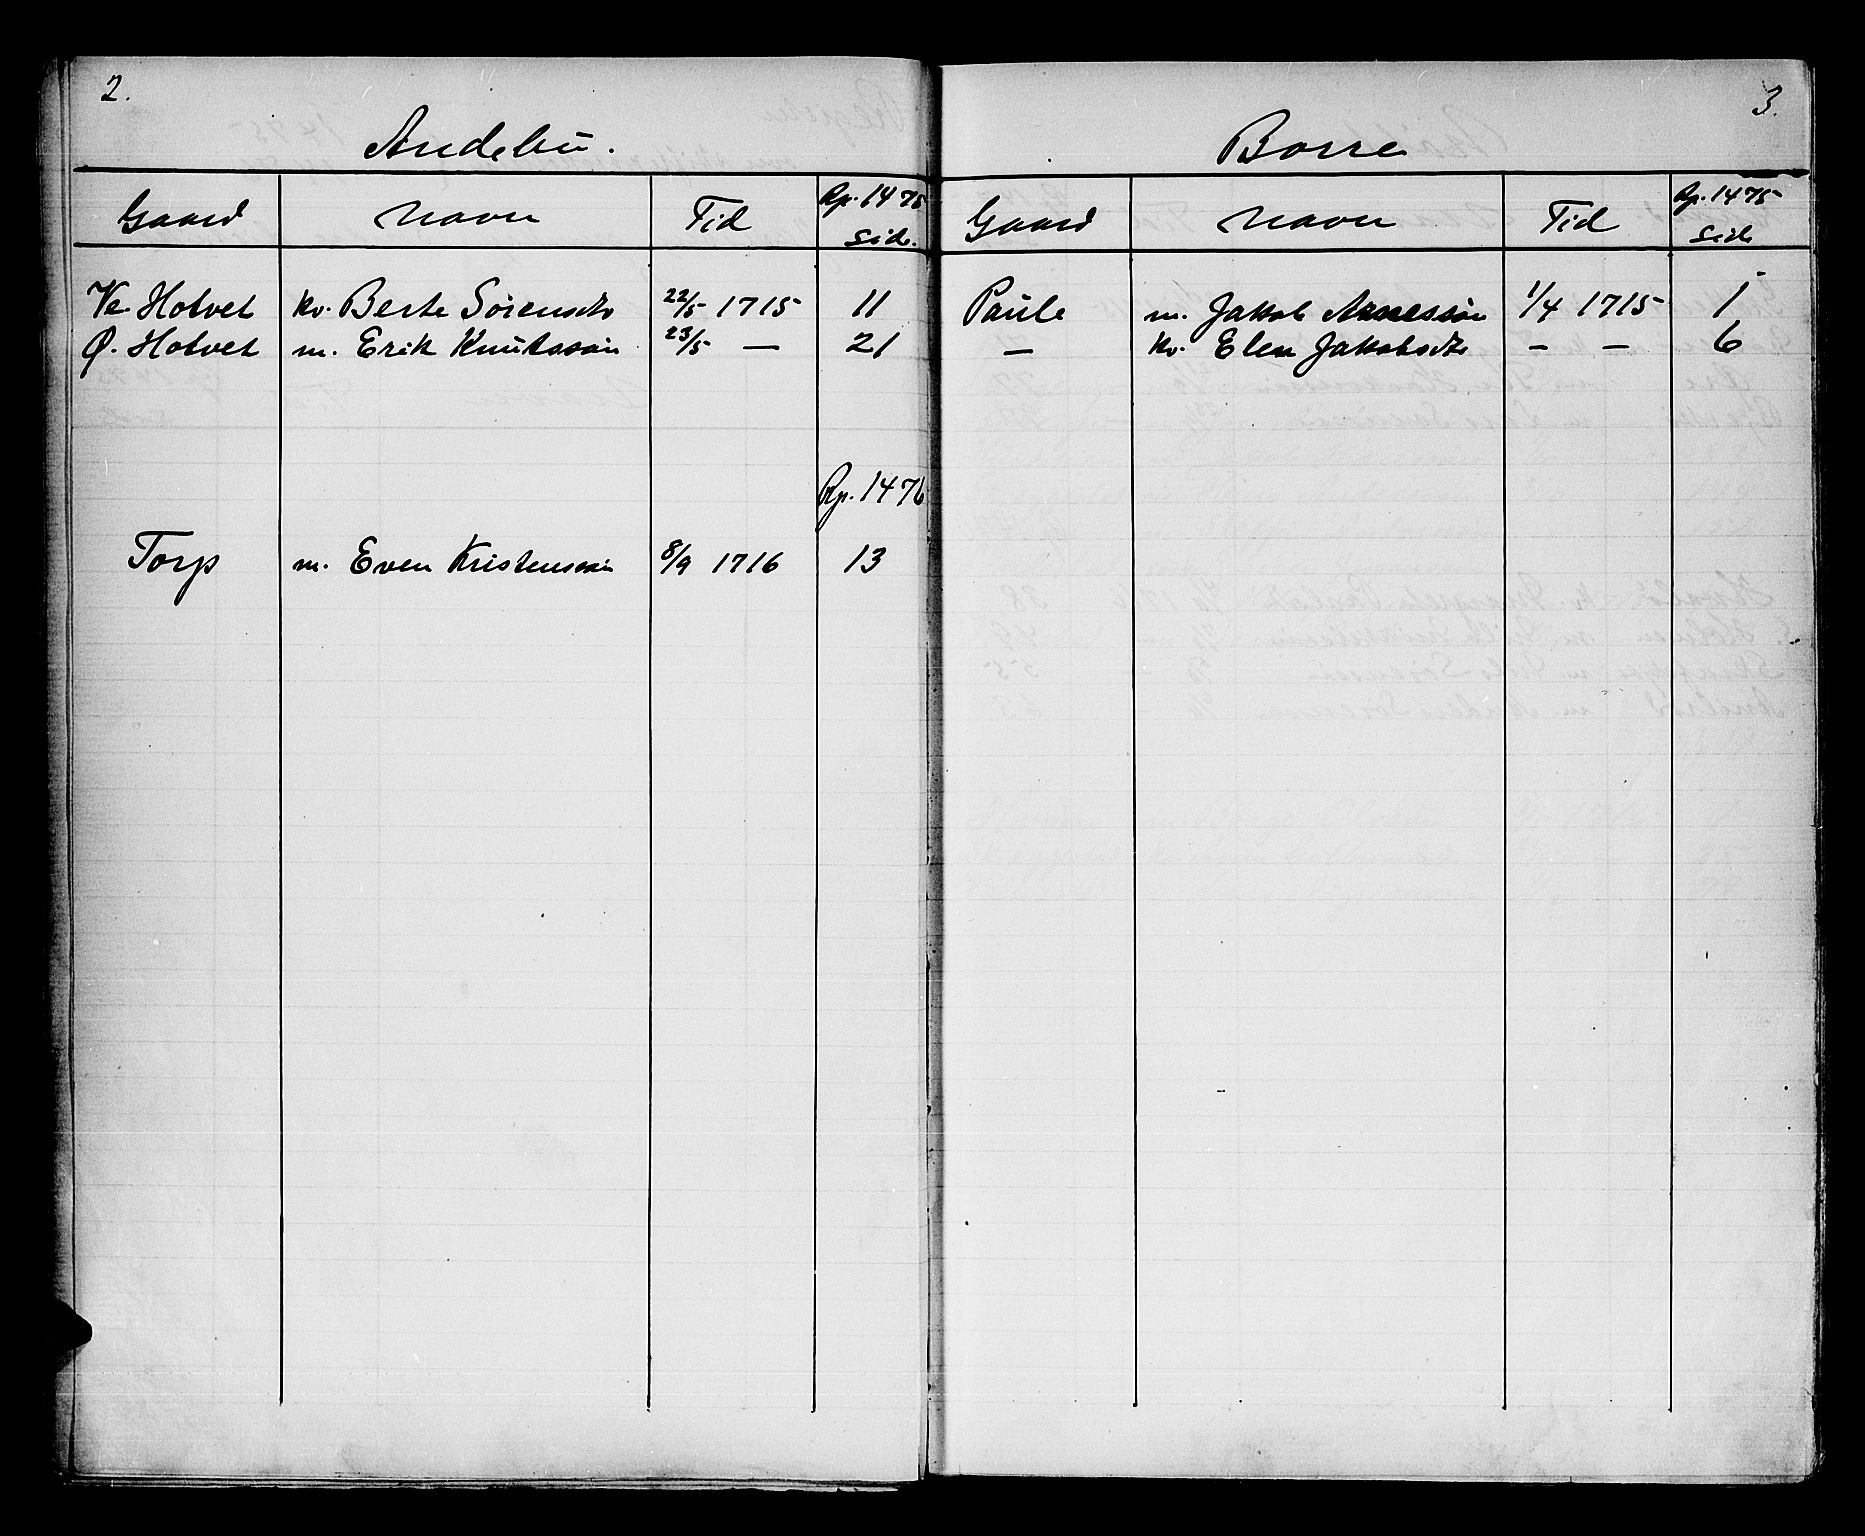 2.
Andebu.
Gaard Navn Tid Rp. 1475 Side.
Ve Hotvet kv. Berte Sörensdtr 22/5 1715 11
Ø. Hotvet m. Erik Knutssön 23/5 — 21
Rp. 1476
Torp m. Even Kristenssön 8/9 1716 13
3.
Borre
Gaard Navn Tid Rp. 1475 Side
Paule m. Jakob Arnessön 1/4 1715 1
— kv. Elen Jakobsdtr — — 6